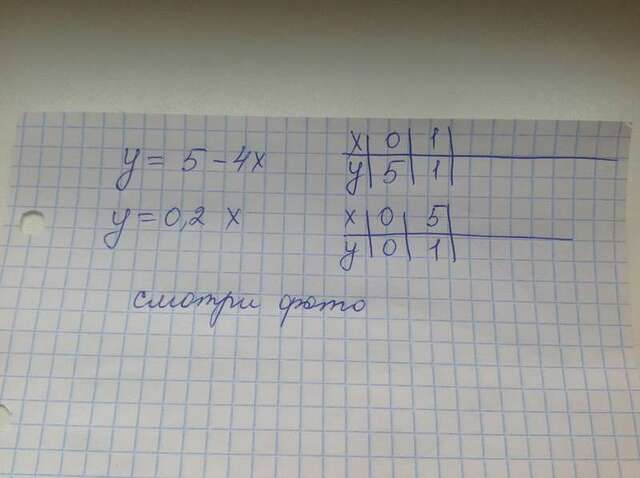 y = 5 - 4x
x 0 1
y 5 1
y = 0,2 x
x 0 5
y 0 1
смотри фото